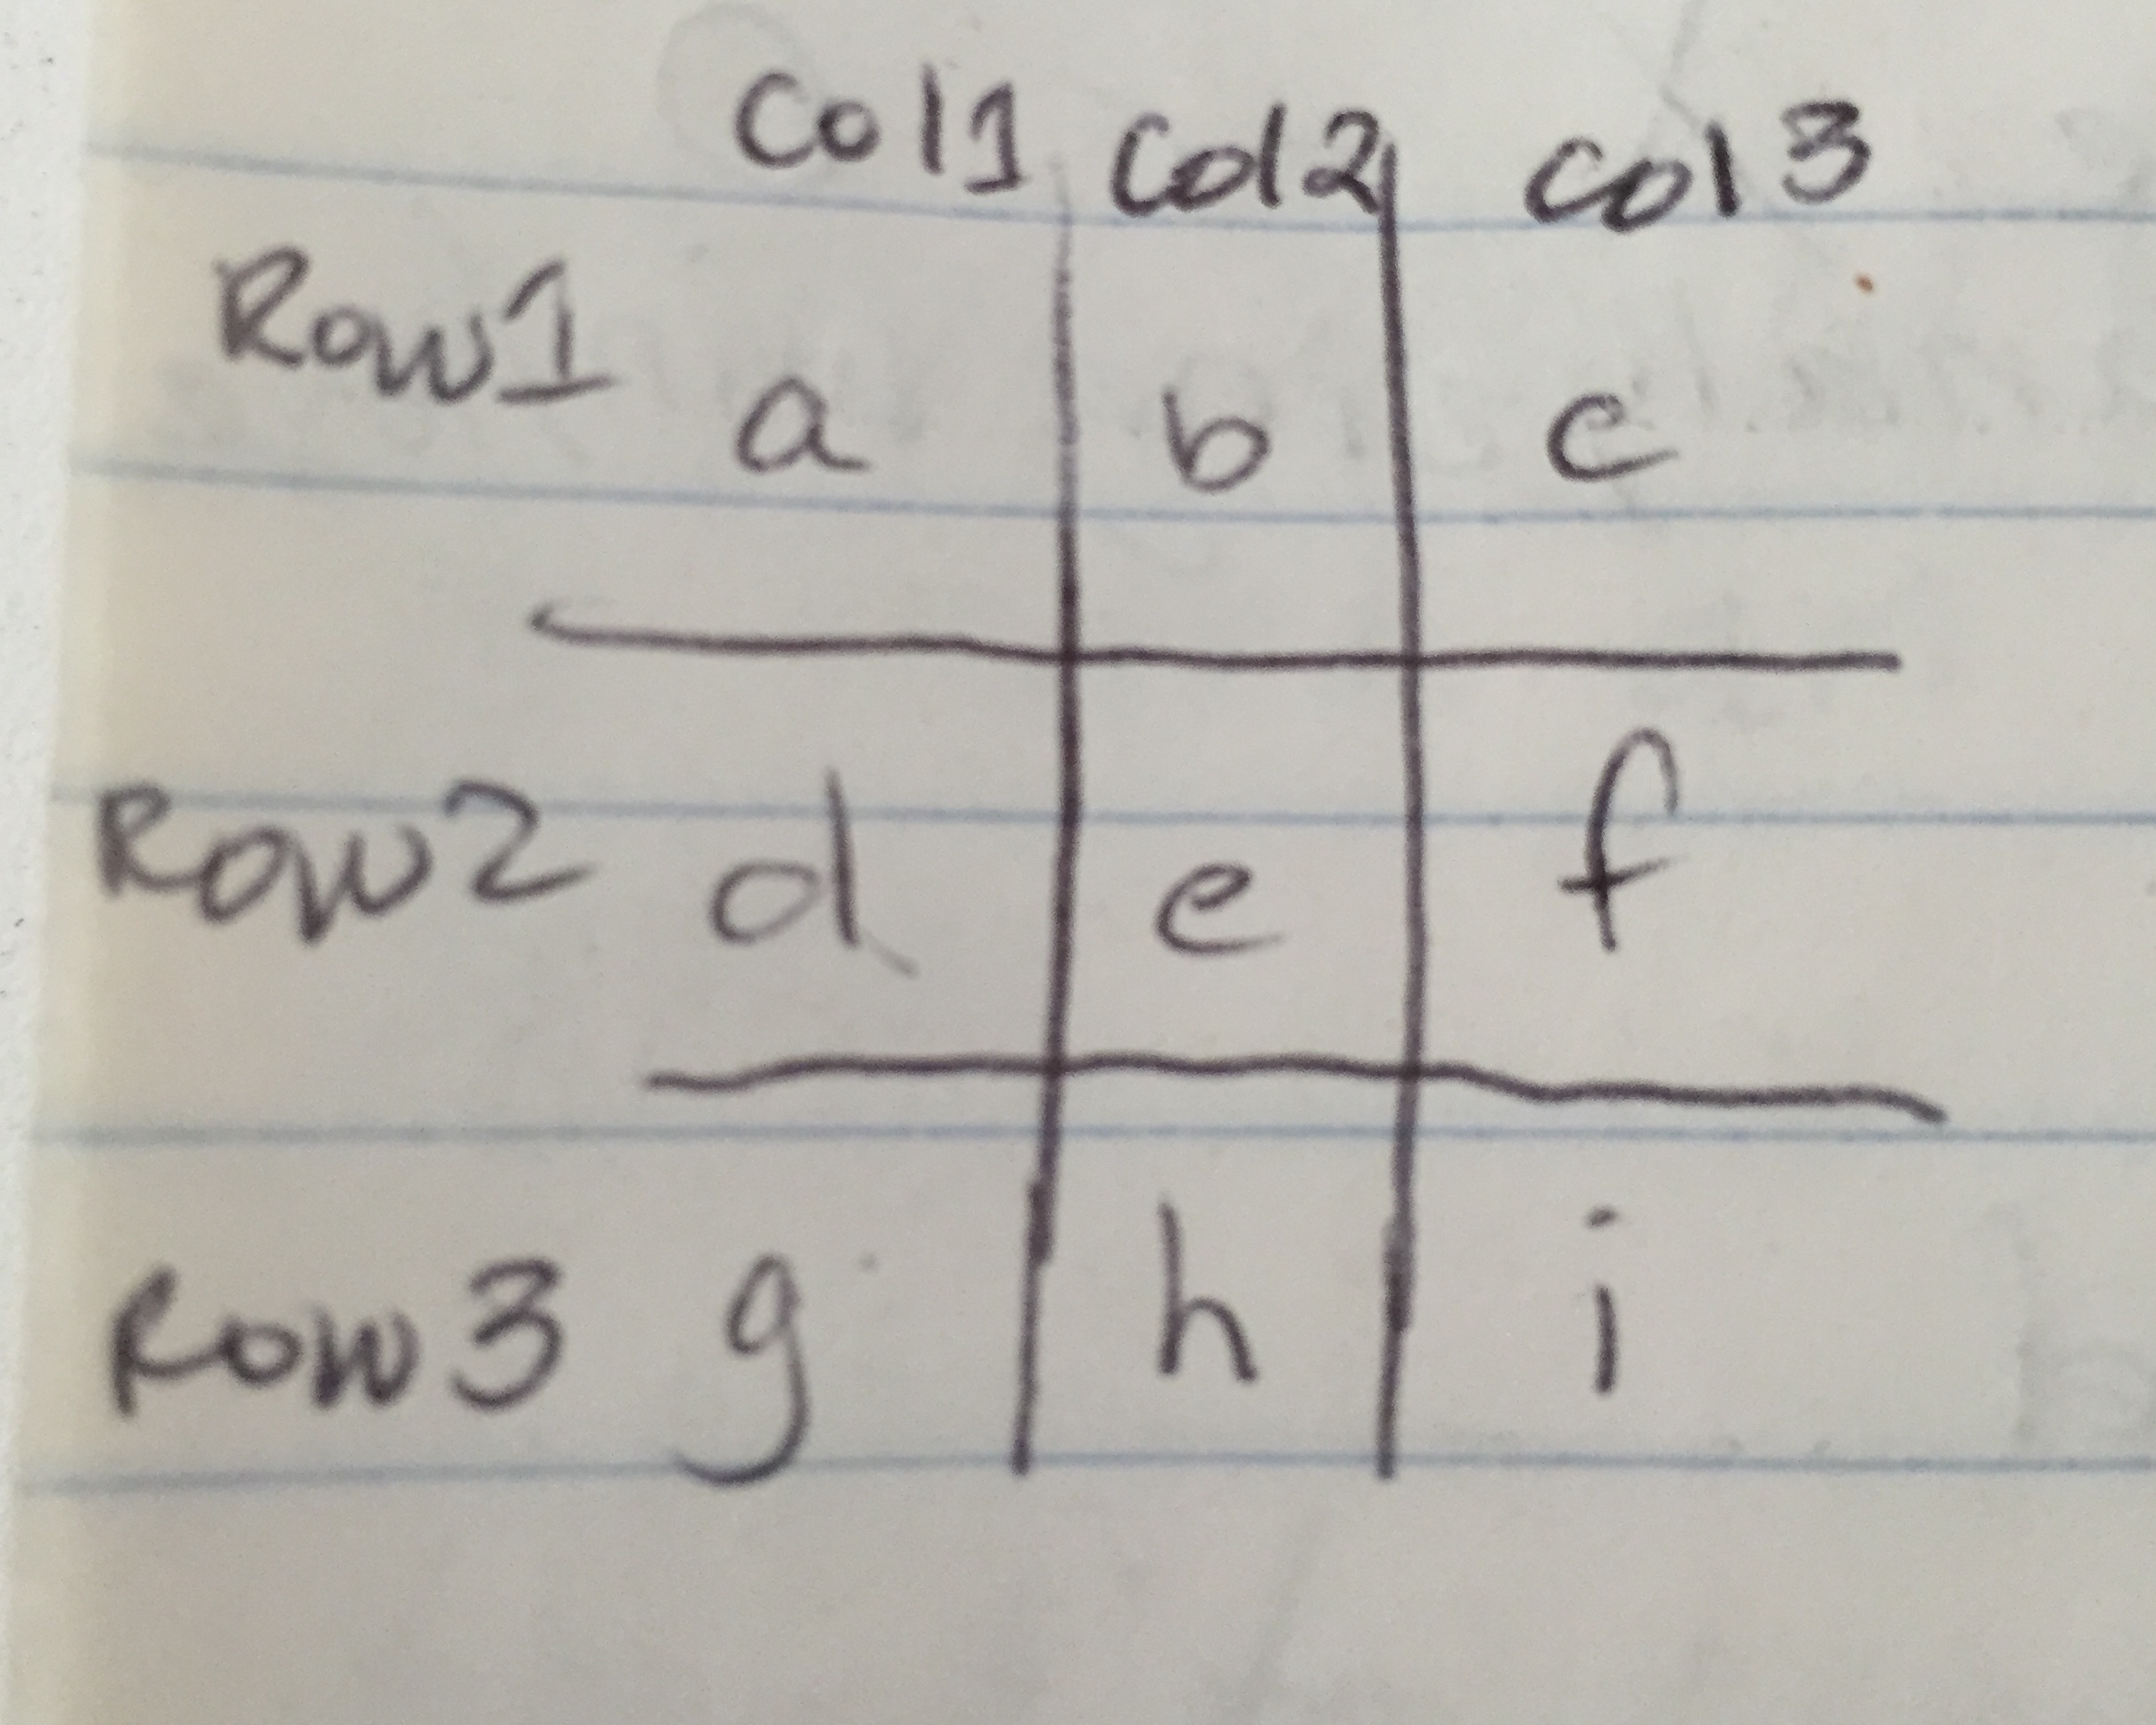 Col1 Col2 Col3
Row1 a b c
Row2 d e f
Row3 g h i